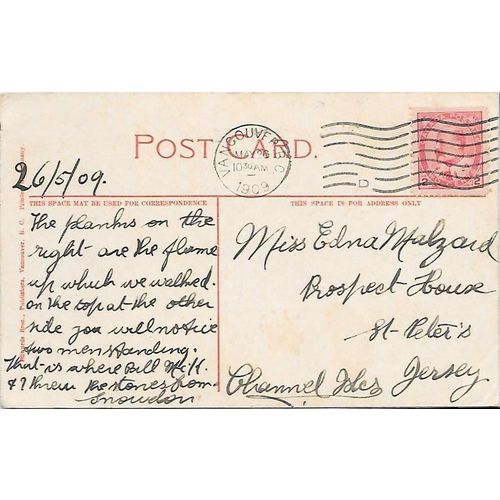 POST CARD.
VANCOUVER, B.C.
MAY 26
10 30 AM
1909
D
2 2
26/5/09.
THIS SPACE MAY BE USED FOR CORRESPONDENCE
THIS SPACE IS FOR ADDRESS ONLY
The planks on the
right are the flume
up which we walked.
on the top at the other
side you will notice
two men standing.
That is where Bill
& I threw the stones from
Snowdon
Miss Edna Malzard
Prospect House
St. Peter's
Jersey
Channel Isles
Bros., Publishers, Vancouver, B. C.